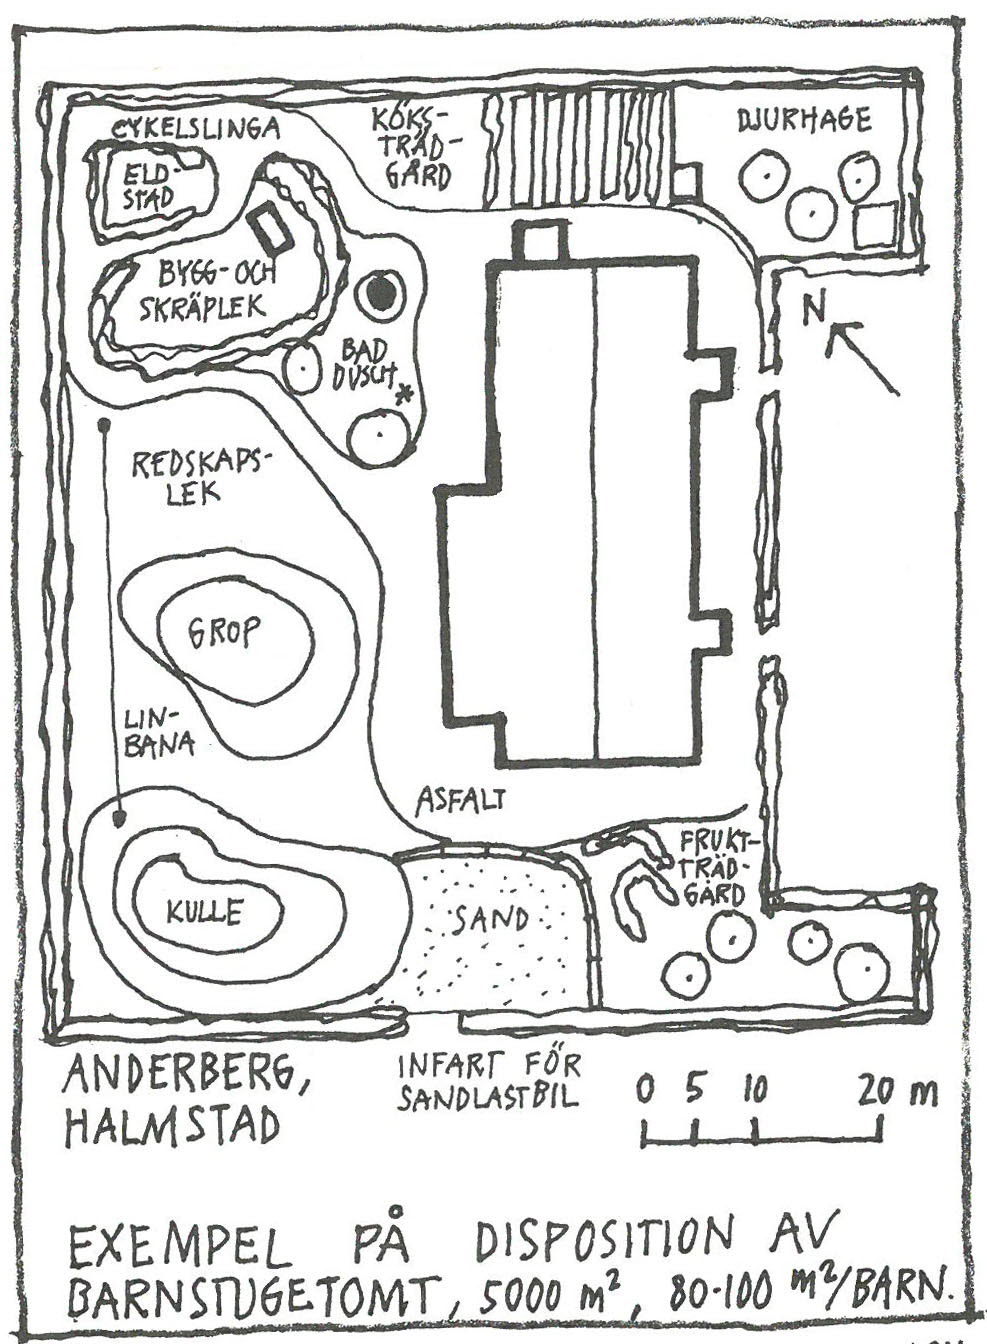 CYKELSLINGA
KÖKS-
TRÄD-
GÅRD
DJURHAGE
ELD-
STAD
BYGG- OCH
SKRÄPLEK
BAD
DUSCH *
N
REDSKAPS-
LEK
GROP
LIN-
BANA
ASFALT
FRUKT-
TRÄD-
GÅRD
KULLE
SAND
ANDERBERG,
HALMSTAD
INFART FÖR
SANDLASTBIL
0 5 10 20 m
EXEMPEL PÅ DISPOSITION AV
BARNSTUGETOMT, 5000 m², 80-100 m²/BARN.